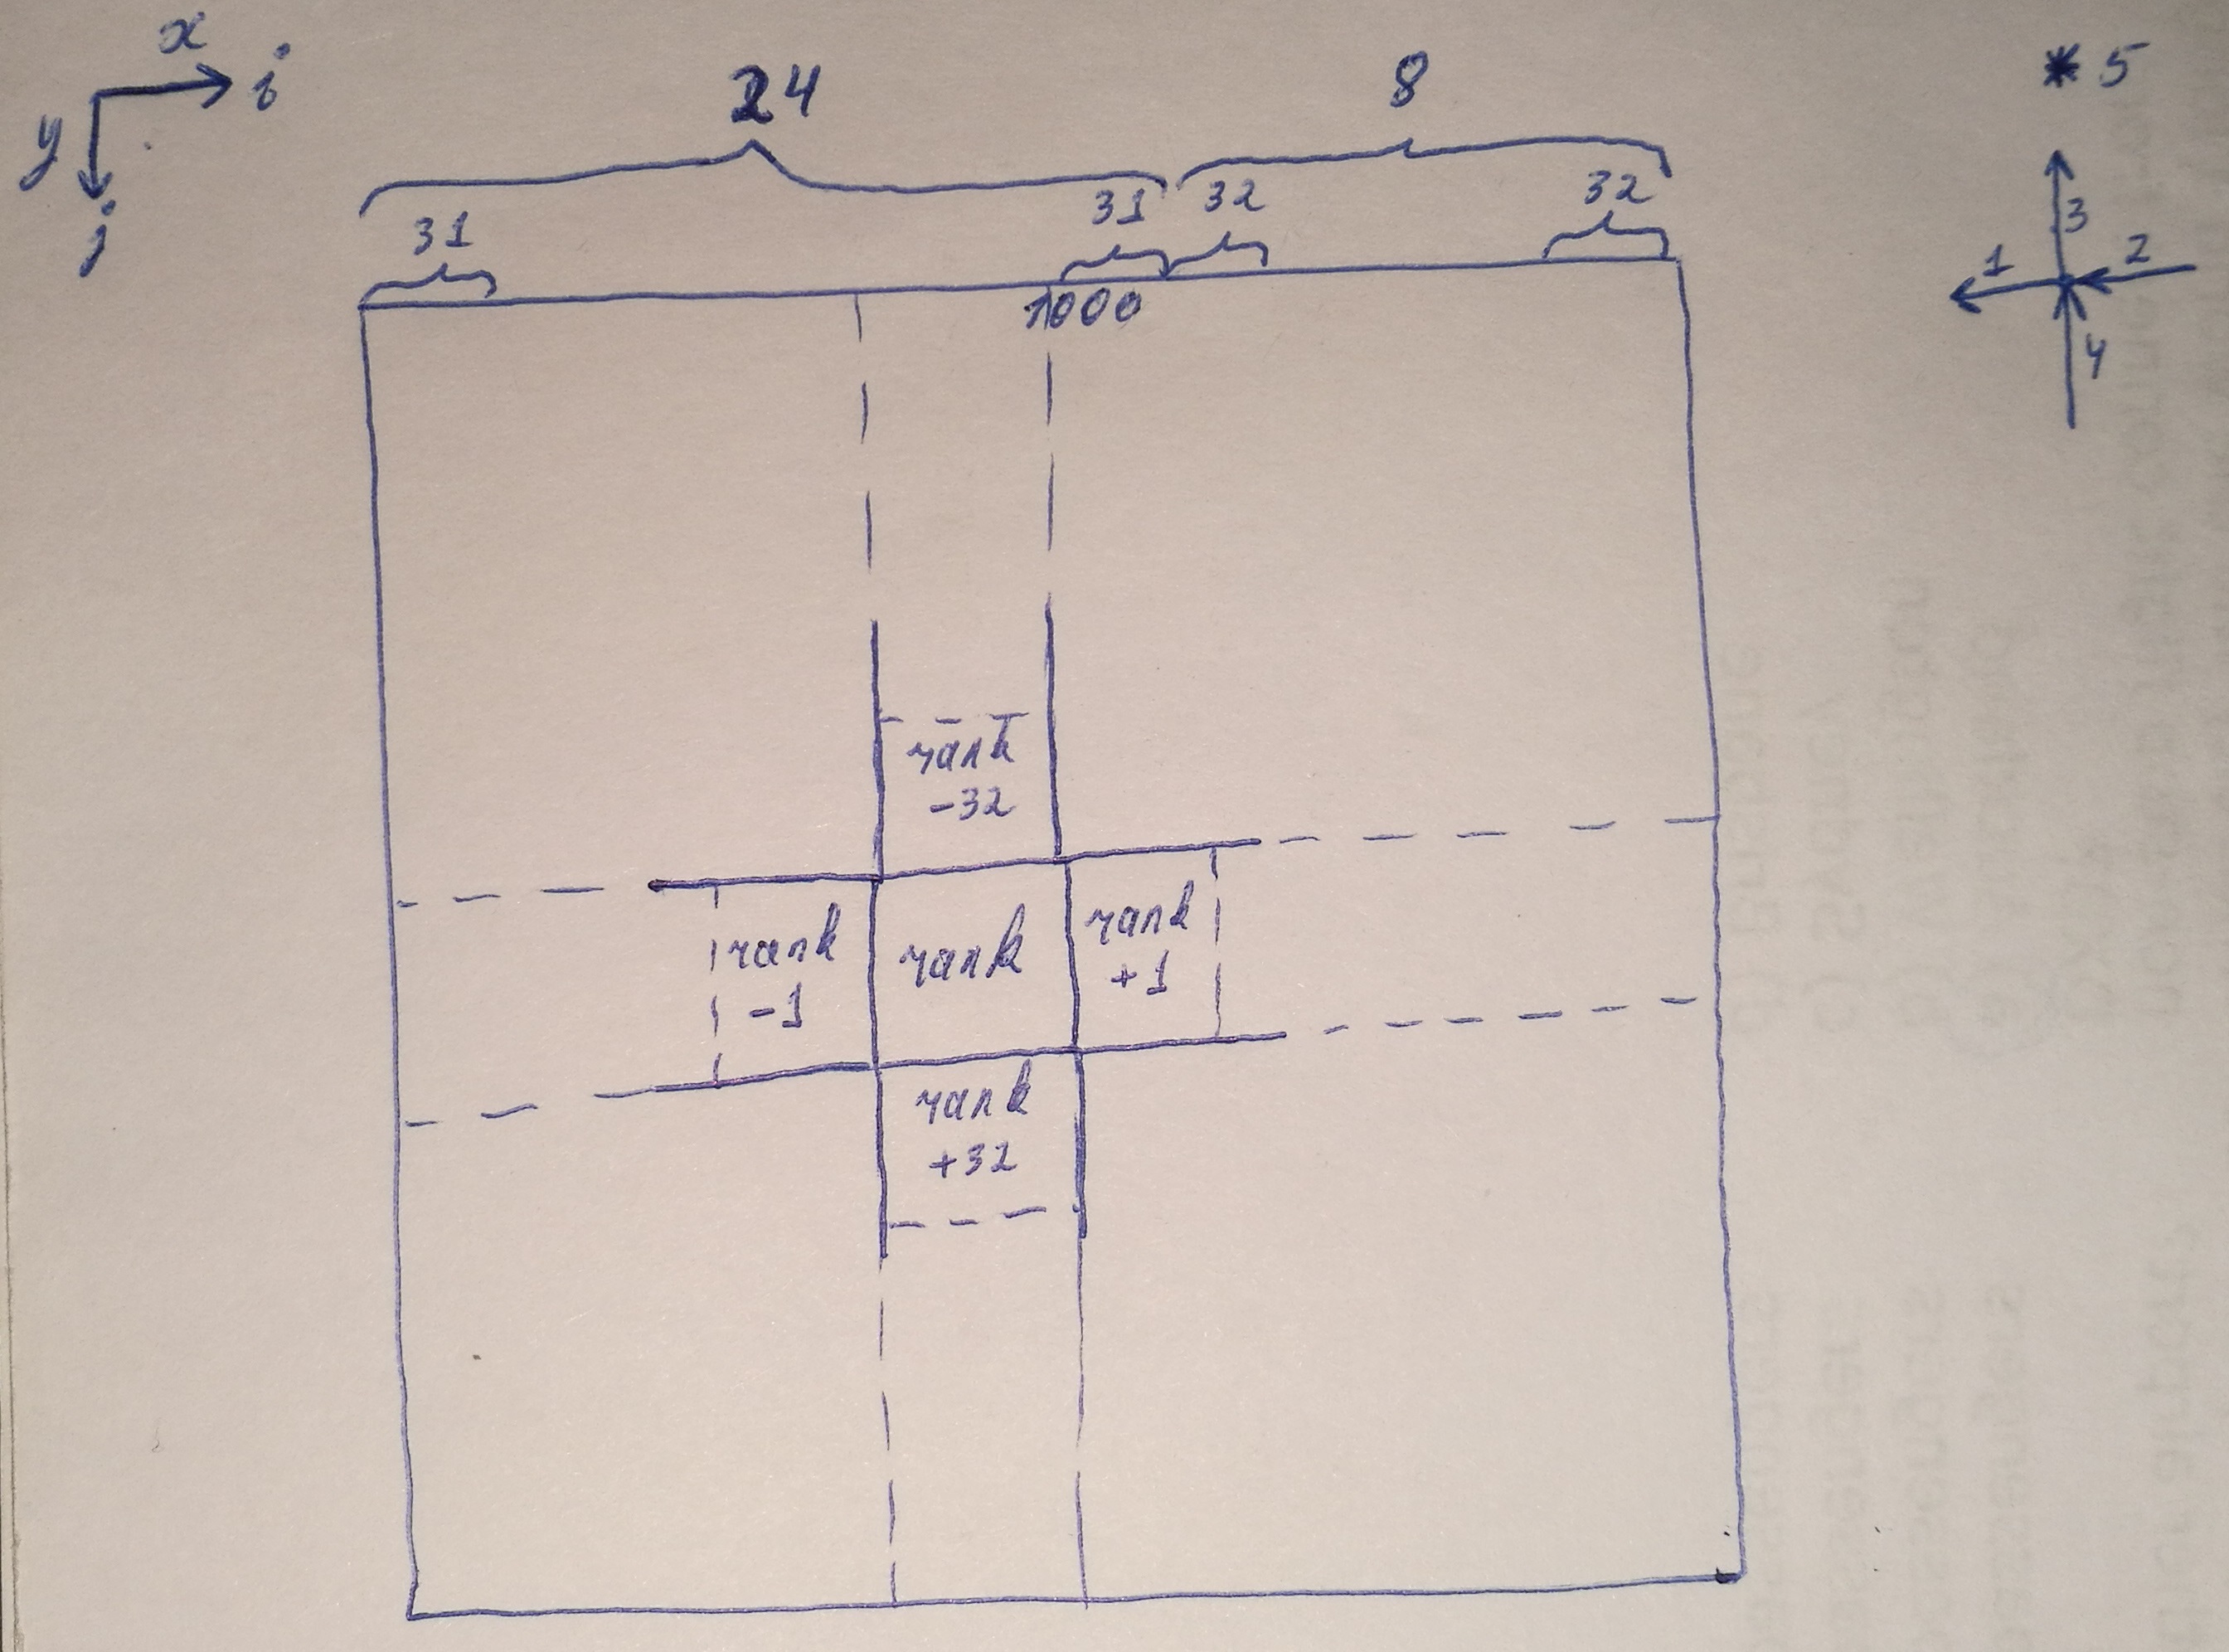 x
i
y
j
24
8
* 5
31
31
32
32
1000
3
1
2
4
rank
-32
rank
-1
rank
rank
+1
rank
+32